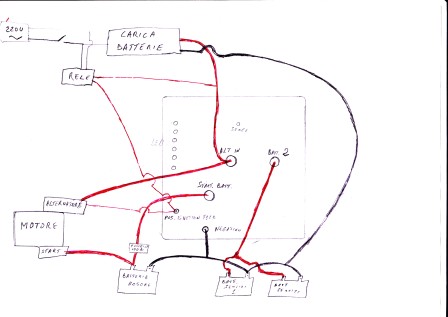 220V
CARICA
BATTERIE
RELE
START
ALT. IN
BAT. 2
START. BATT.
ALTERNATORE
POS. IGNITION FEED
NEGATIVO
MOTORE
START
BATTERIA
MOTORE
BATT
SERVIZI
1
BATT
SERVIZI